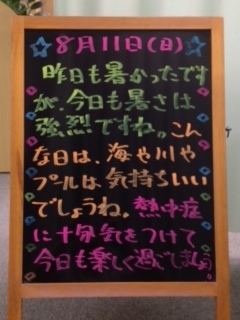 8月11日(日)
昨日も暑かったです
が、今日も暑さは
強烈ですね。こん
な日は、海や川や
プールは、気持ちいい
でしょうね。熱中症
に十分気をつけて
今日も楽しく過ごしましょう。